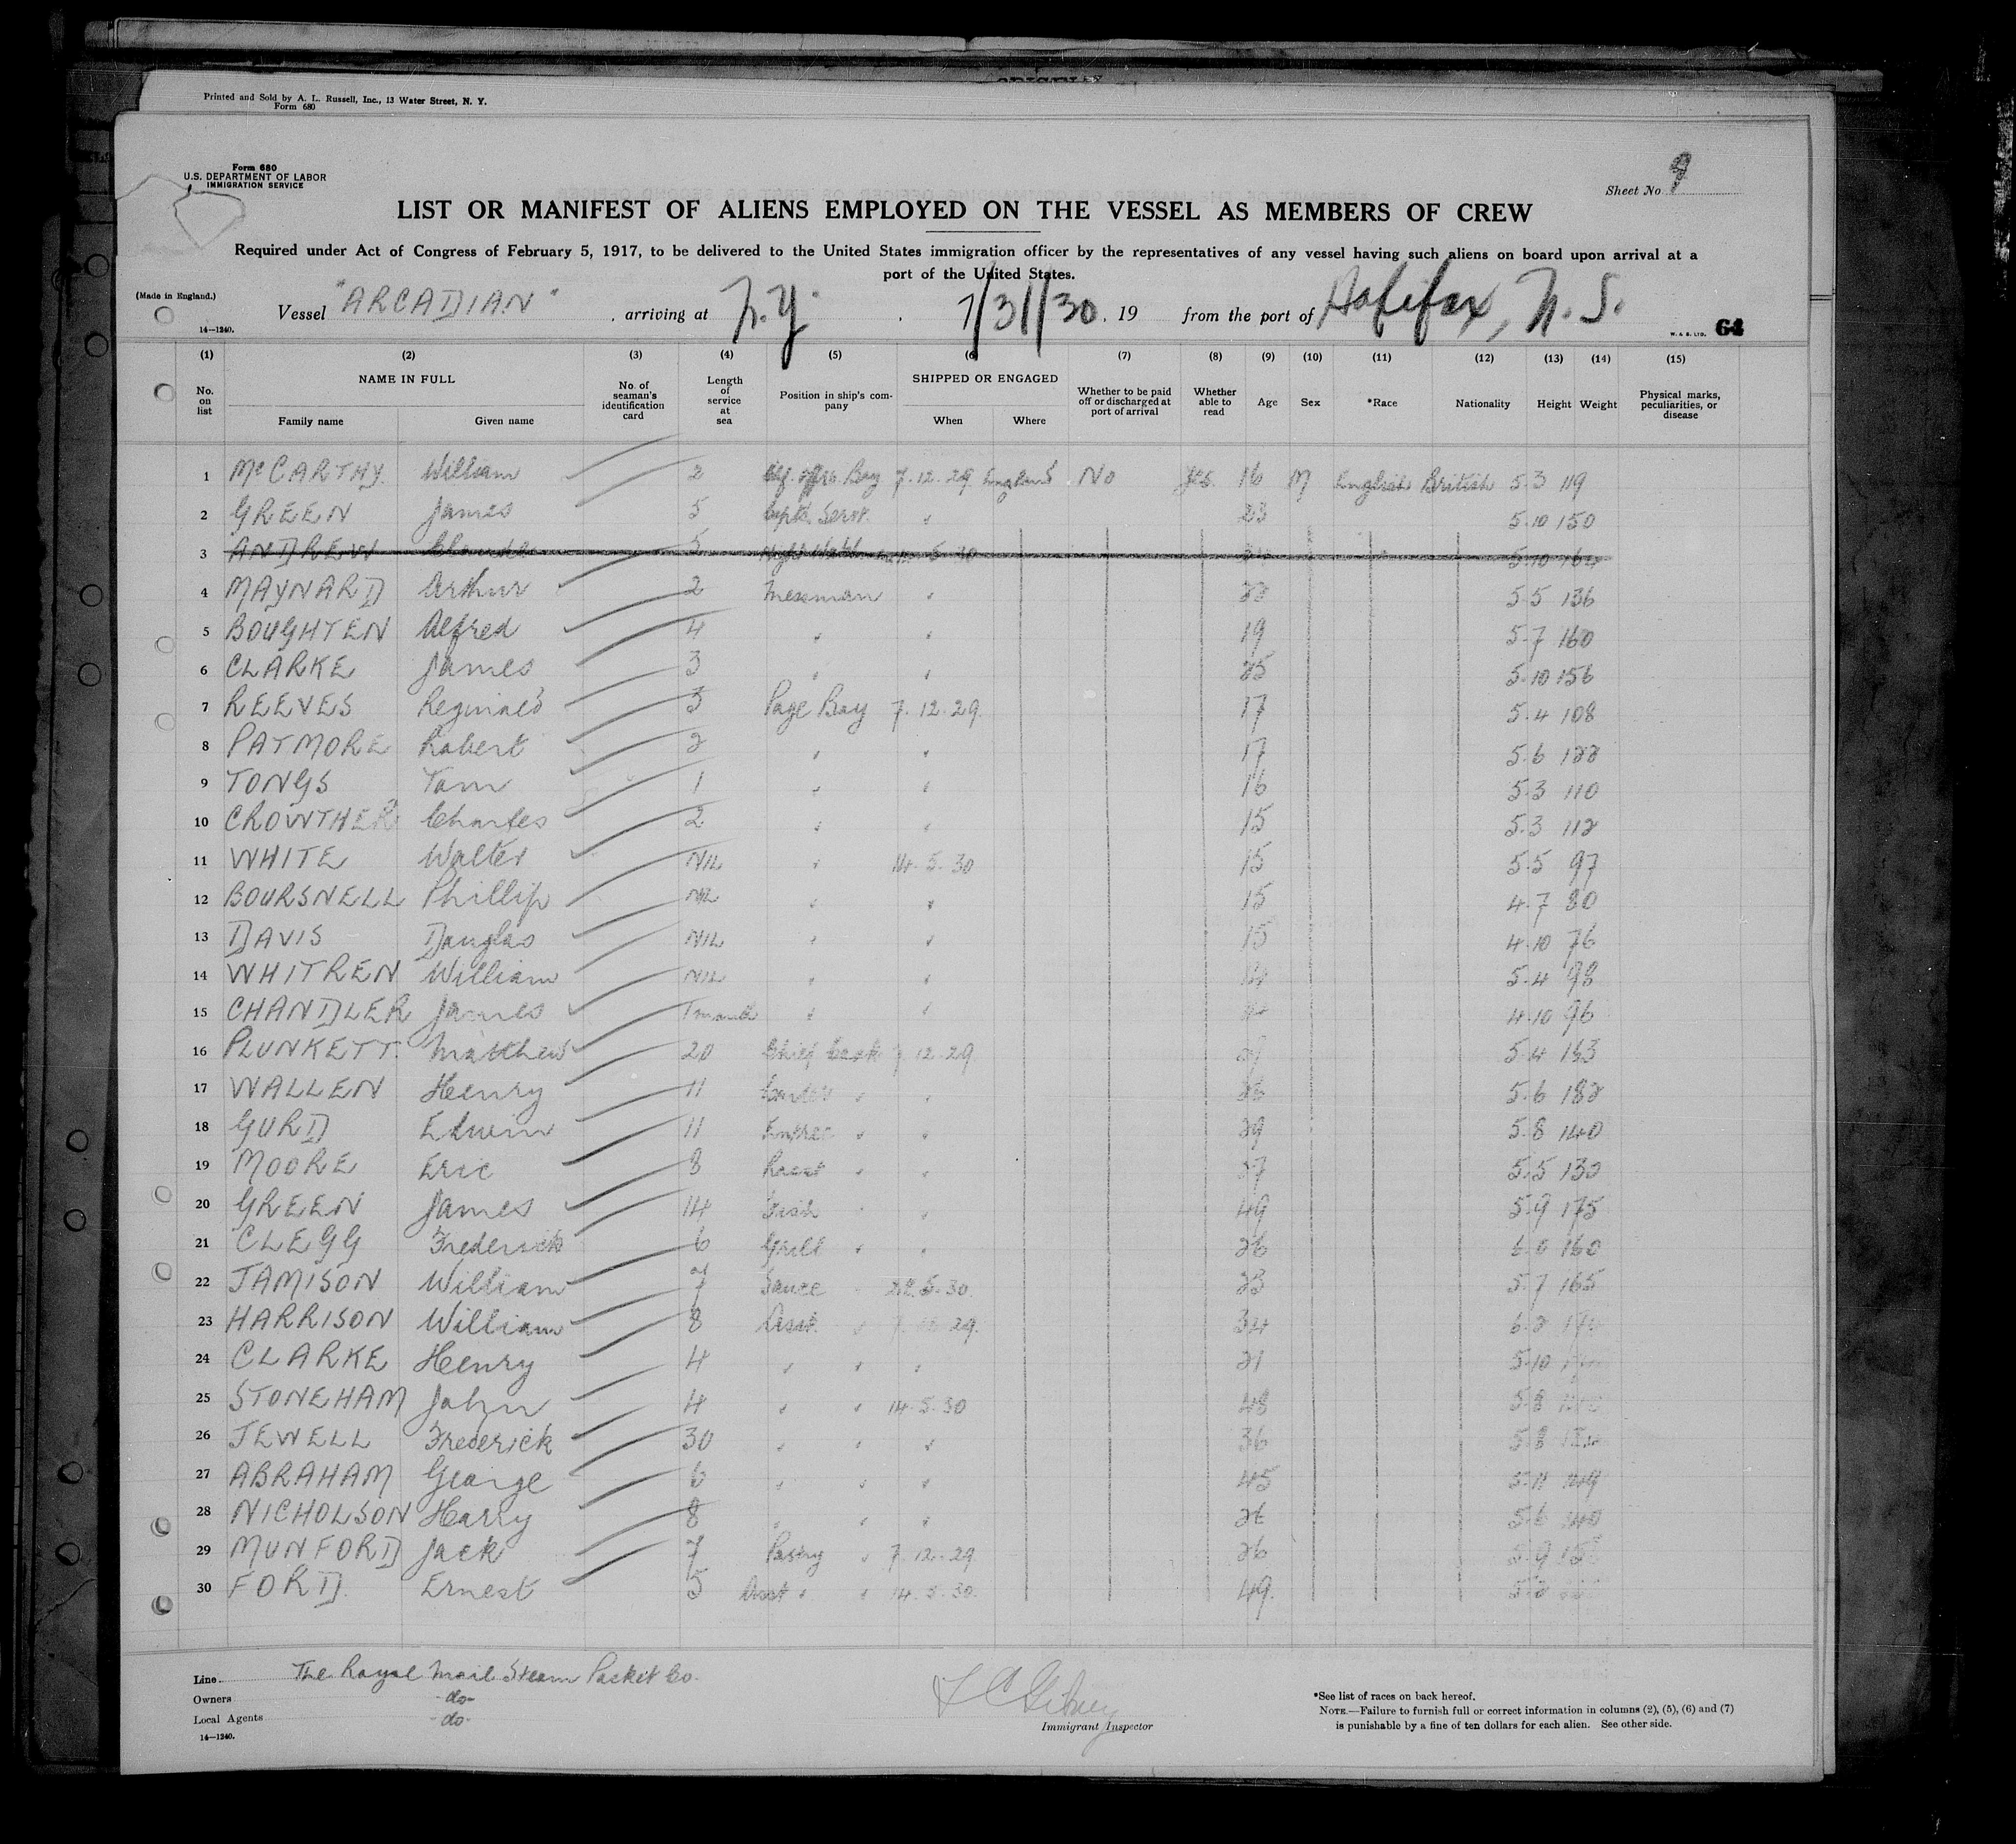 Printed and Sold by A. L. Russell, Inc., 13 Water Street, N. Y.
Form 680
Form 680
U.S. DEPARTMENT OF LABOR
IMMIGRATION SERVICE
Sheet No. 9
LIST OR MANIFEST OF ALIENS EMPLOYED ON THE VESSEL AS MEMBERS OF CREW
Required under Act of Congress of February 5, 1917, to be delivered to the United States immigration officer by the representatives of any vessel having such aliens on board upon arrival at a
port of the United States.
(Made in England.)
Vessel "ARCADIAN", arriving at N.Y., 7/31/30, 19 from the port of Halifax, N.S.
14—1240.
W. & S. LTD. 64
(1) (2) (3) (4) (5) (6) (7) (8) (9) (10) (11) (12) (13) (14) (15)
No. on list NAME IN FULL Family name Given name No. of seaman's identification card Length of service at sea Position in ship's company SHIPPED OR ENGAGED When Where Whether to be paid off or discharged at port of arrival Whether able to read Age Sex *Race Nationality Height Weight Physical marks, peculiarities, or disease
1 McCARTHY. William 2 Boy 7.12.29 England No yes. 16 M English British 5.3 119
2 GREEN James 5 Capts. Servt. " 23 5.10 150
3 ANDREW Claude 5 Night Watchman 5.30 5.10 164
4 MAYNARD Arthur 2 Messman " 22 5.5 136
5 BOUGHTEN Alfred 4 " " 19 5.7 160
6 CLARKE James 3 " " 25 5.10 156
7 REEVES Reginald 3 Page Boy 7.12.29. 17 5.4 108
8 PATMORE Robert 2 " " 17 5.6 122
9 TONGS Tom 1 " " 16 5.3 110
10 CROWTHER Charles 2 " " 15 5.3 112
11 WHITE Walter NIL " 14.5.30 15 5.5 97
12 BOURSNELL Phillip NIL " " 15 4.7 80
13 DAVIS Douglas NIL " " 15 4.10 76
14 WHITREN William NIL " " 14 5.4 98
15 CHANDLER James 1 month " " 14 4.10 96
16 PLUNKETT. Matthew 20 Chief Cook 7.12.29. 5.4 153
17 WALLEN Henry 11 " " 5.6 182
18 GURD Edwin 11 Entree " " 29 5.8 140
19 MOORE Eric 8 Roast " " 27 5.5 132
20 GREEN James 14 Fish " " 49 5.9 175
21 CLEGG Frederick 6 Grill " " 26 6.0 160
22 JAMISON William 7 Sauce " 28.5.30. 23 5.7 165
23 HARRISON William 8 Asst. " 7.12.29. 34 6.2
24 CLARKE Henry 4 " " " 21 5.10
25 STONEHAM John 4 " " 14.5.30 48 5.8
26 JEWELL Frederick 30 " " " 36 5.8
27 ABRAHAM George 6 " " " 45 5.11
28 NICHOLSON Harry 8 " " " 26 5.6 140
29 MUNFORD Jack 7 Pastry " 7.12.29 26 5.9
30 FORD. Ernest 5 Asst " " 14.5.30. 49. 5.2
Line The Royal Mail Steam Packet Co.
Owners -do-
Local Agents -do-
14—1240.
Immigrant Inspector
*See list of races on back hereof.
NOTE.—Failure to furnish full or correct information in columns (2), (5), (6) and (7)
is punishable by a fine of ten dollars for each alien. See other side.